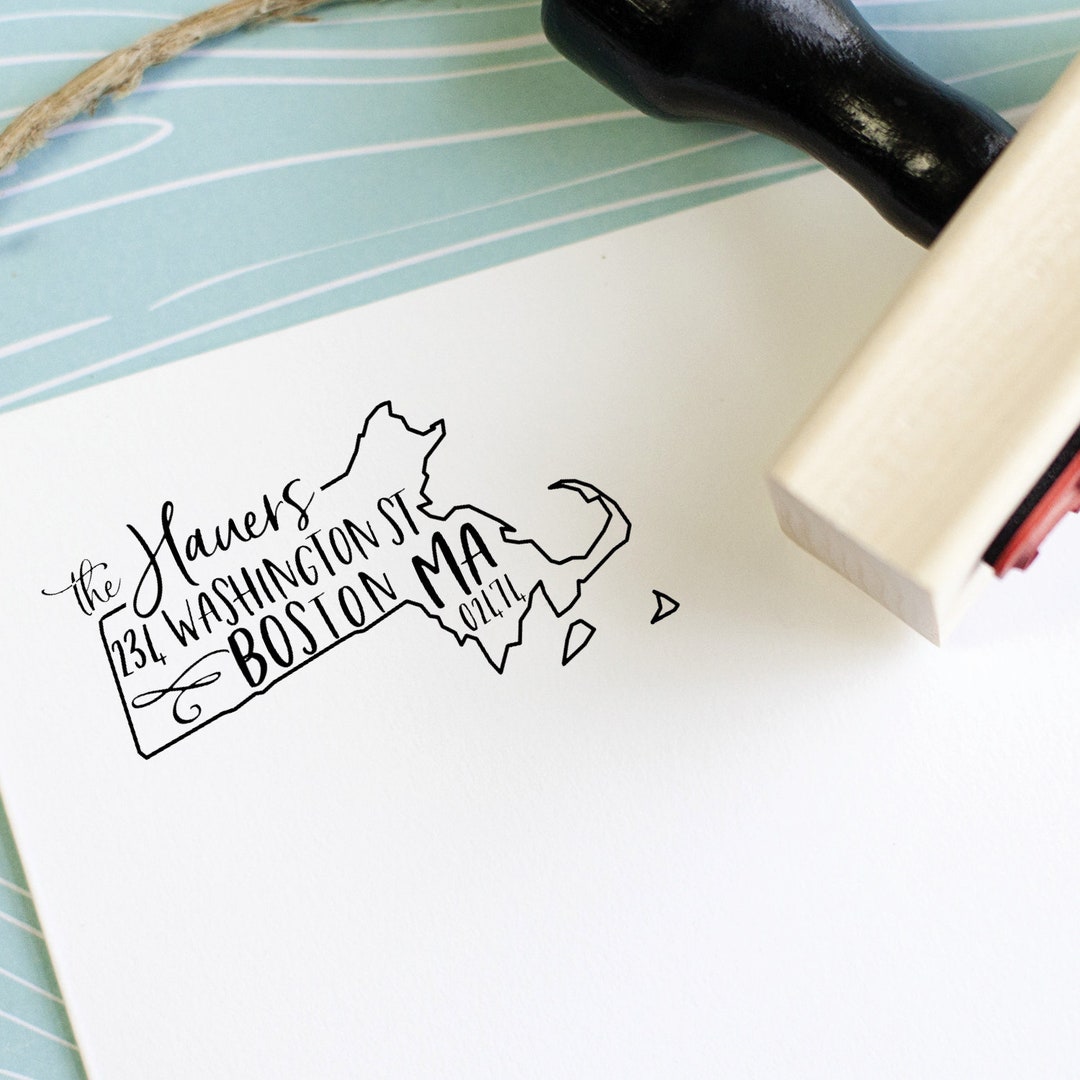 the Hauers
234 WASHINGTON ST
BOSTON MA
02474